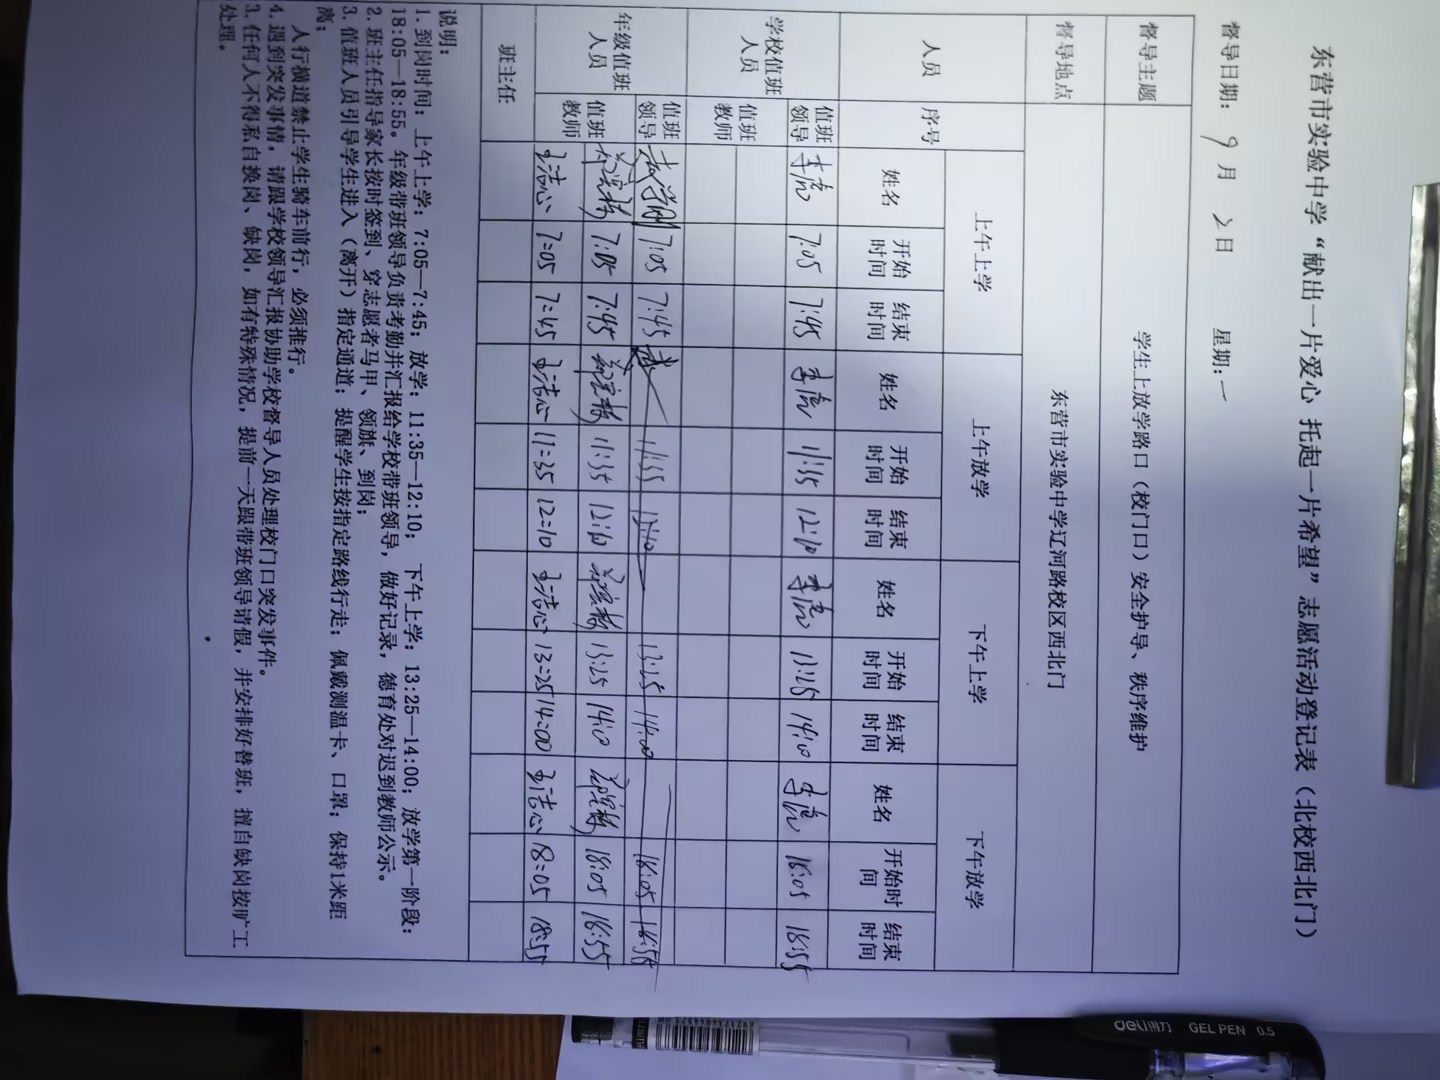 东营市实验中学“献出一片爱心 托起一片希望”志愿活动登记表（北校西北门）
督导日期： 9 月 2 日 星期：一
督导主题 学生上放学路口（校门口）安全护导、秩序维护
督导地点 东营市实验中学辽河路校区西北门
人员 上午上学 上午放学 下午上学 下午放学
序号 姓名 开始时间 结束时间 姓名 开始时间 结束时间 姓名 开始时间 结束时间 姓名 开始时间 结束时间
学校值班人员 值班领导 李亮 7:05 7:45 李亮 11:35 12:10 李亮 13:25 14:10 李亮 18:05 18:55
值班教师
年级值班人员 值班领导 7:05 7:45 11:35 12:10 13:25 14:00 18:05 18:55
值班教师 7:05 7:45 11:35 12:10 13:25 14:10 18:05 18:55
王洁心 7:05 7:45 王洁心 11:35 12:10 王洁心 13:25 14:00 王洁心 18:05 18:55
班主任
说明：
1. 到岗时间：上午上学：7:05—7:45；放学：11:35—12:10； 下午上学：13:25—14:00；放学第一阶段：
18:05—18:55。年级带班领导负责考勤并汇报给学校带班领导，做好记录，德育处对迟到教师公示。
2. 班主任指导家长按时签到、穿志愿者马甲、领旗、到岗；
3. 值班人员引导学生进入（离开）指定通道；提醒学生按指定路线行走；佩戴测温卡、口罩；保持1米距
离；
人行横道禁止学生骑车前行，必须推行。
4. 遇到突发事情，请跟学校领导汇报协助学校督导人员处理校门口突发事件。
3. 任何人不得私自换岗、缺岗，如有特殊情况，提前一天跟带班领导请假，并安排好替班，擅自缺岗按旷工
处理。
deli得力 GEL PEN 0.5